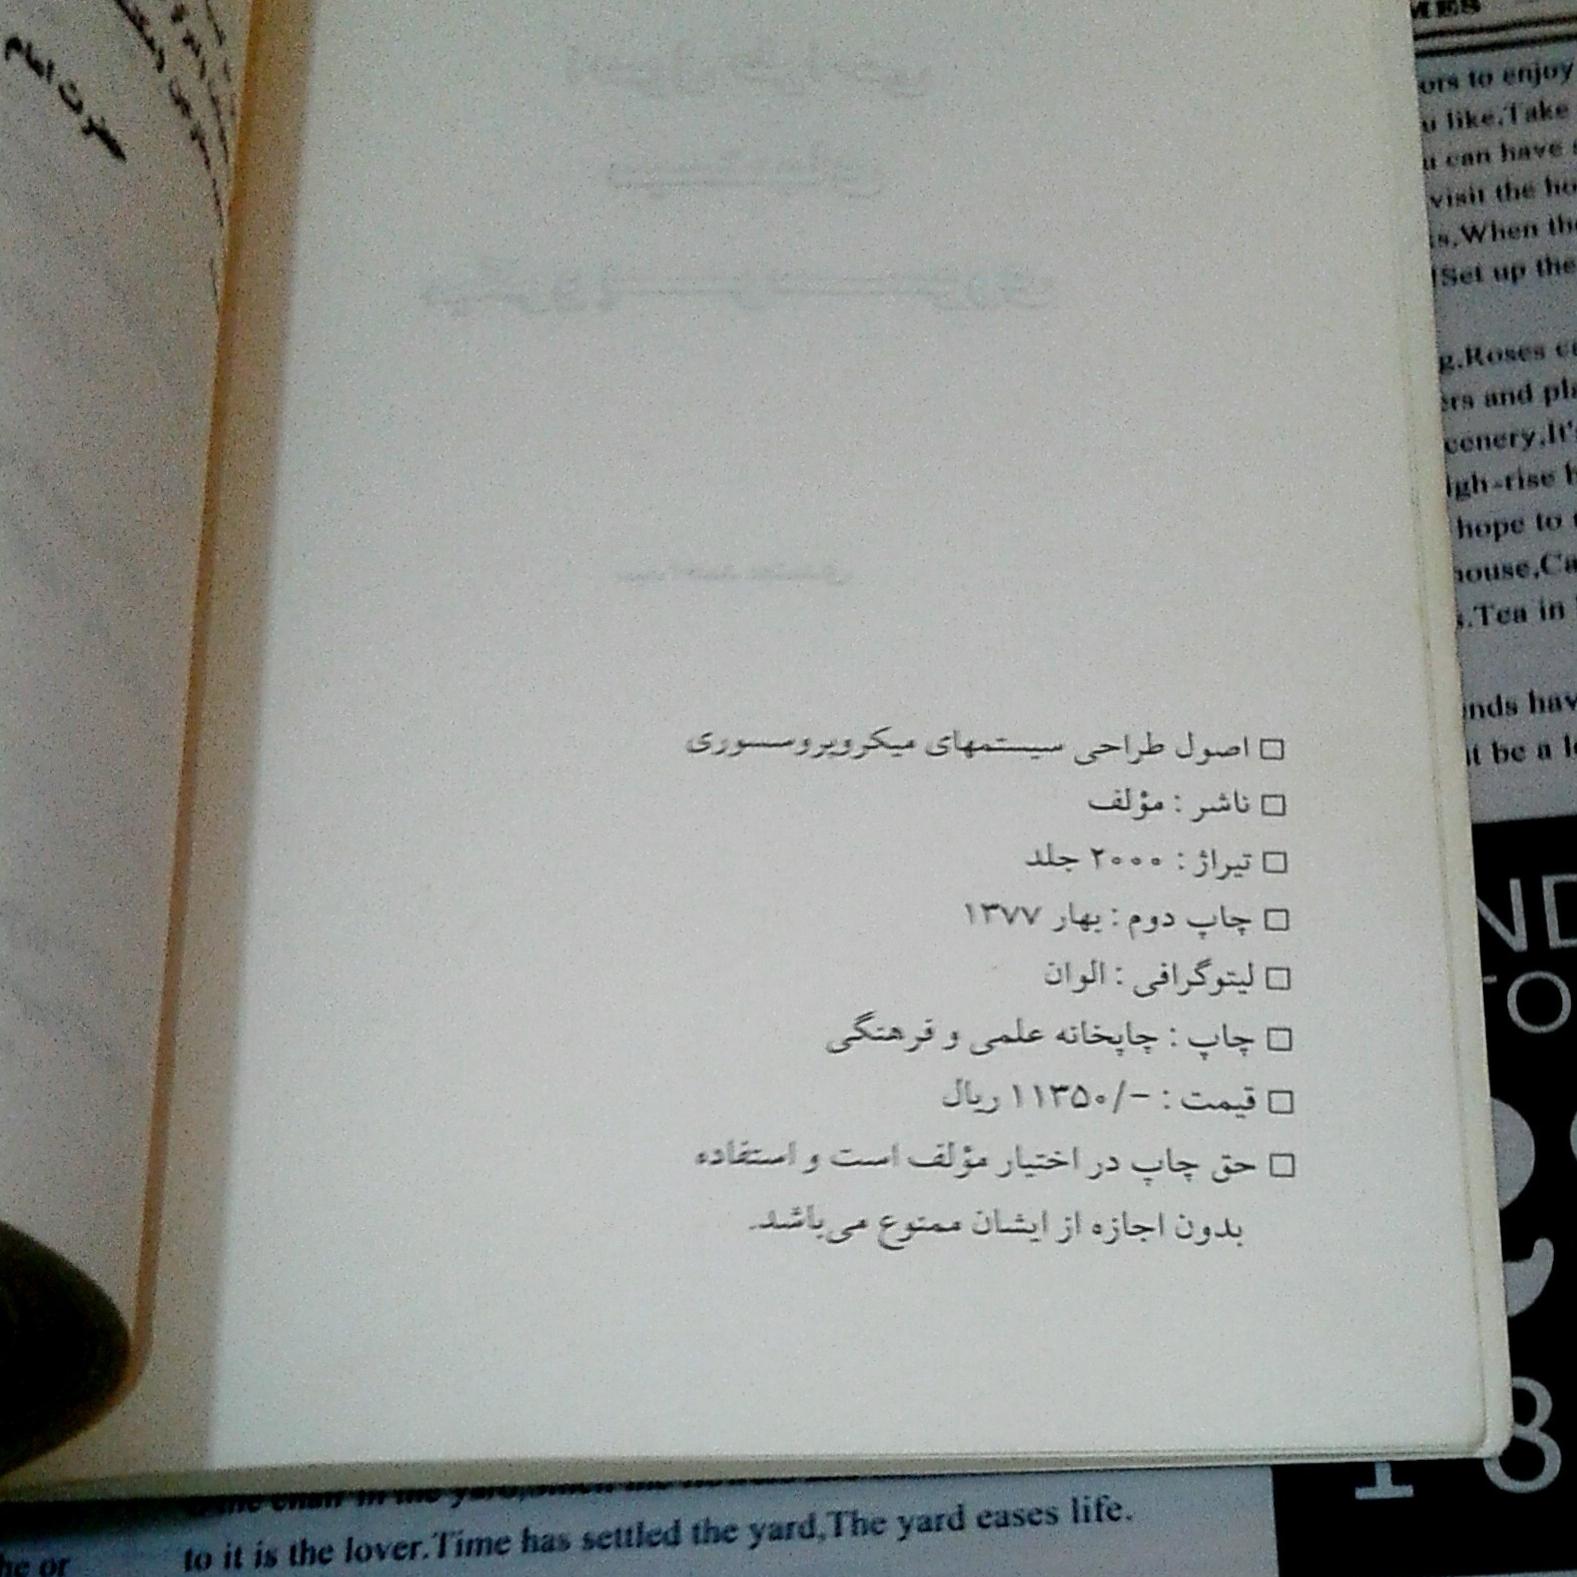 □ اصول طراحی سیستمهای میکروپروسسوری
□ ناشر : مؤلف
□ تیراژ : ۲۰۰۰ جلد
□ چاپ دوم : بهار ۱۳۷۷
□ لیتوگرافی : الوان
□ چاپ : چاپخانه علمی و فرهنگی
□ قیمت : -/۱۱۳۵۰ ریال
□ حق چاپ در اختیار مؤلف است و استفاده
بدون اجازه از ایشان ممنوع می‌باشد.
حضرت امام
MES
ors to enjoy
u like,Take
u can have
visit the
is,When the
Set up the
g.Roses
ers and
cenery,It's
igh-rise
hope to
house,
s.Tea in
nds
it be a
ND
TO
18
to it is the lover.Time has settled the yard,The yard eases life.
he or